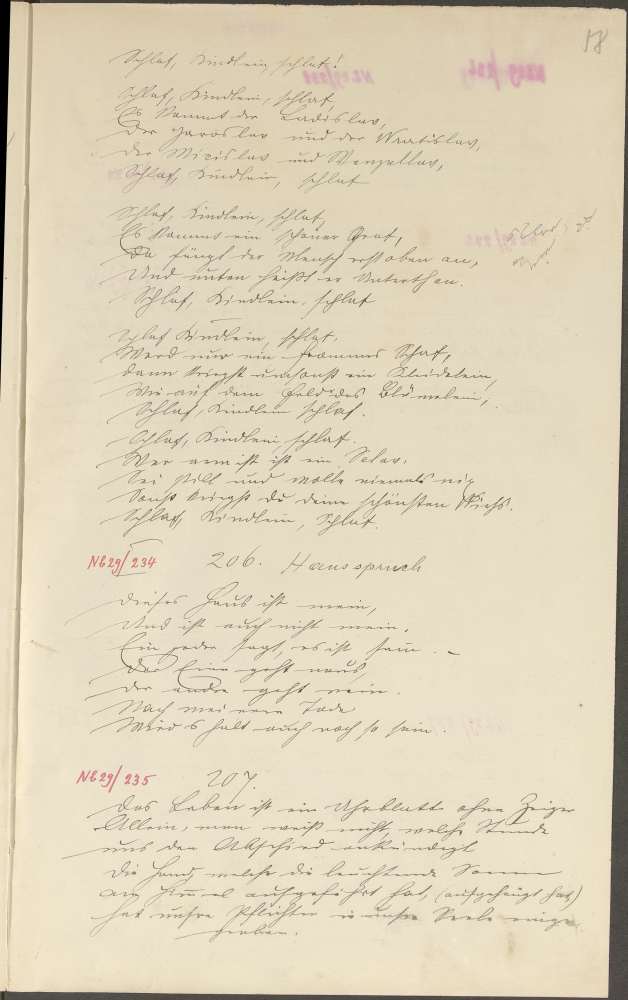 58
Schlaf, Kindlein, schlaf!
Schlaf, Kindlein, schlaf,
Es kommt der Ladislav,
Der Jaroslav und der Wratislav,
Der Mizislav und Wenzellav,
Schlaf, Kindlein, schlaf
Schlaf, Kindlein, schlaf,
Es kommt ein schöner Graf,
Da fängt der Mensch erst oben an,
Und unten heißt er Unterthan.
Schlaf, Kindlein, schlaf
Schlaf Kindlein, schlaf.
Werd nur ein frommes Schaf,
Dann kriegst umsonst ein Kleidelein,
Wie auf dem Feld des Blümelein,
Schlaf, Kindlein schlaf.
Schlaf, Kindlein, schlaf.
Wer arm ist ist ein Sclav.
Sei still und wolle niemals nix
Sonst kriegst du deine schönsten Wichs.
Schlaf, Kindlein, schlaf.
N629/234 206. Hausspruch
Dieses Haus ist mein,
Und ist auch nicht mein.
Ein jeder sagt, es ist sein. –
Der Eine geht naus,
Der andre geht nein.
Nach meinem Tode
Wird's halt auch noch so sein.
N629/235 207.
Das Leben ist ein Uhrblatt ohne Zeiger
Allein, man weiß nicht, welche Stunde
uns den Abschied ankündigt
Die Hand, welche die leuchtende Sonne
am Himmel aufgeführt hat, (aufgehängt hat)
hat unsre Pflichten in unsre Seele einge-
graben.